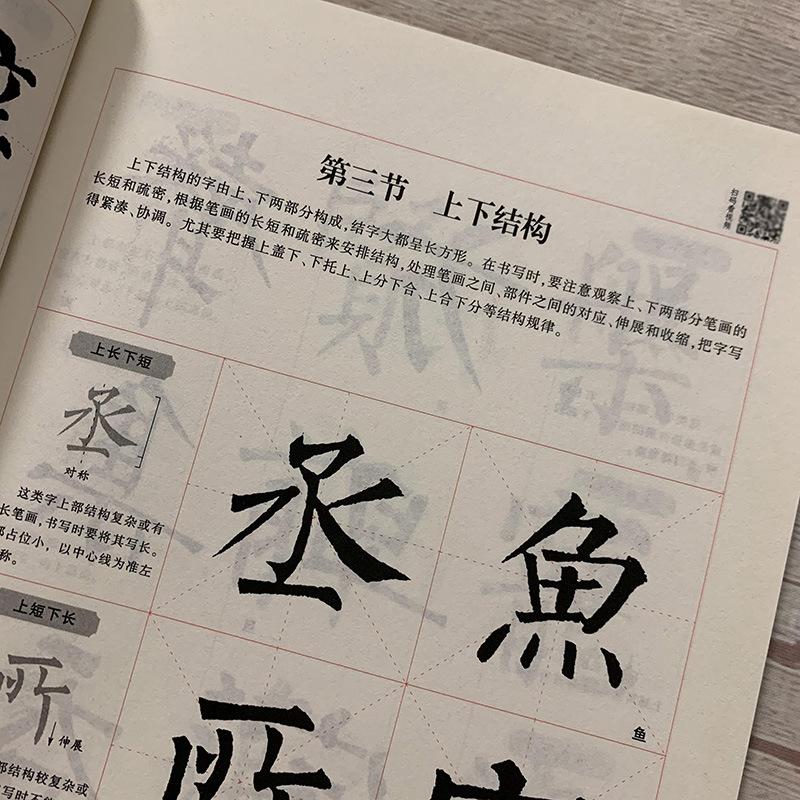 第三节 上下结构
扫码看视频
上下结构的字由上、下两部分构成,结字大都呈长方形。在书写时,要注意观察上、下两部分笔画的
长短和疏密,根据笔画的长短和疏密来安排结构,处理笔画之间、部件之间的对应、伸展和收缩,把字写
得紧凑、协调。尤其要把握上盖下、下托上、上分下合、上合下分等结构规律。
上长下短
丞
对称
这类字上部结构复杂或有
长笔画,书写时要将其写长。
部占位小,以中心线为准左
称。
丞
魚
鱼
上短下长
伸展
部结构较复杂或